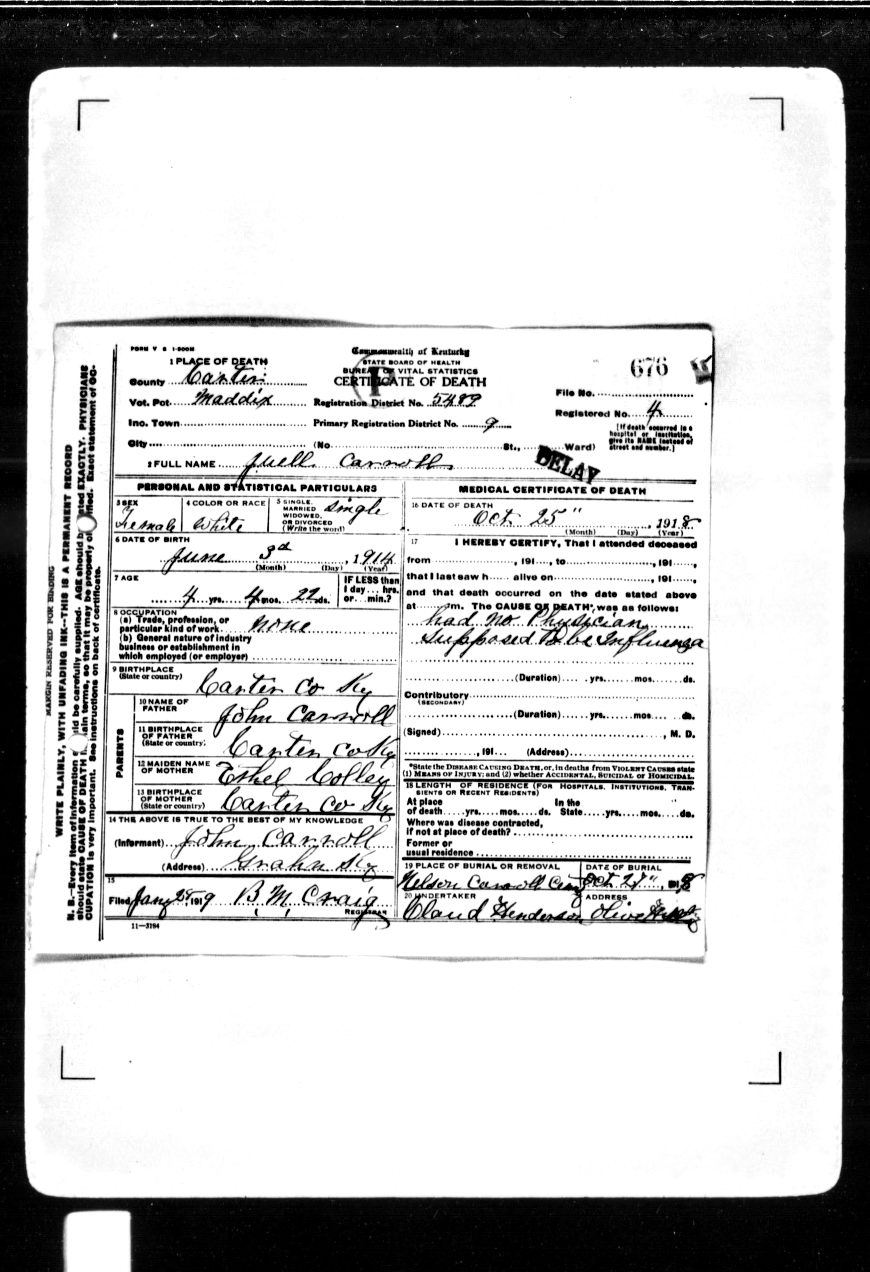 FORM V S 1-500M
Commonwealth of Kentucky
STATE BOARD OF HEALTH
BUREAU OF VITAL STATISTICS
CERTIFICATE OF DEATH
676
1 PLACE OF DEATH
County Carter
Vot. Pct. Maddix
Registration District No. 5489
File No.
Inc. Town
Primary Registration District No. 9
Registered No. 4
City (No. St., Ward)
[If death occurred in a hospital or institution, give its NAME instead of street and number.]
DELAY
2 FULL NAME Juell Carroll
PERSONAL AND STATISTICAL PARTICULARS
3 SEX Female
4 COLOR OR RACE White
5 SINGLE, MARRIED WIDOWED, OR DIVORCED (Write the word) Single
6 DATE OF BIRTH
June 3d, 1914
(Month) (Day) (Year)
7 AGE
4 yrs. 4 mos. 22 ds.
IF LESS than 1 day... hrs. or... min.?
8 OCCUPATION
(a) Trade, profession, or particular kind of work none
(b) General nature of industry business or establishment in which employed (or employer)
9 BIRTHPLACE
(State or country)
Carter Co Ky
10 NAME OF FATHER John Carroll
11 BIRTHPLACE OF FATHER (State or country) Carter Co Ky
12 MAIDEN NAME OF MOTHER Ethel Colley
13 BIRTHPLACE OF MOTHER (State or country) Carter Co Ky
PARENTS
14 THE ABOVE IS TRUE TO THE BEST OF MY KNOWLEDGE
(Informant) John Carroll
(Address) Grahn Ky
15
Filed Jany 25 1919 B. M. Craig
REGISTRAR
11—3184
MEDICAL CERTIFICATE OF DEATH
16 DATE OF DEATH
Oct 25", 1918
(Month) (Day) (Year)
17 I HEREBY CERTIFY, That I attended deceased
from , 191 , to , 191 ,
that I last saw h alive on , 191 ,
and that death occurred on the date stated above
at m. The CAUSE OF DEATH* was as follows:
had no Physician
Supposed to be Influenza
(Duration) yrs. mos. ds.
Contributory
(SECONDARY)
(Duration) yrs. mos. ds.
(Signed) , M. D.
, 191 (Address)
*State the DISEASE CAUSING DEATH, or, in deaths from VIOLENT CAUSES state
(1) MEANS OF INJURY; and (2) whether ACCIDENTAL, SUICIDAL OR HOMICIDAL.
18 LENGTH OF RESIDENCE (FOR HOSPITALS, INSTITUTIONS, TRANSIENTS OR RECENT RESIDENTS)
At place of death yrs. mos. ds. In the State yrs. mos. ds.
Where was disease contracted, if not at place of death?
Former or usual residence
19 PLACE OF BURIAL OR REMOVAL
Nelson Carroll
DATE OF BURIAL
Oct 27", 1918
20 UNDERTAKER
Claud Henderson
ADDRESS
Olive Hill Ky
MARGIN RESERVED FOR BINDING
WRITE PLAINLY, WITH UNFADING INK—THIS IS A PERMANENT RECORD
N. B.—Every item of information should be carefully supplied. AGE should be stated EXACTLY. PHYSICIANS
should state CAUSE OF DEATH in plain terms, so that it may be properly classified. Exact statement of OC-
CUPATION is very important. See instructions on back of certificate.